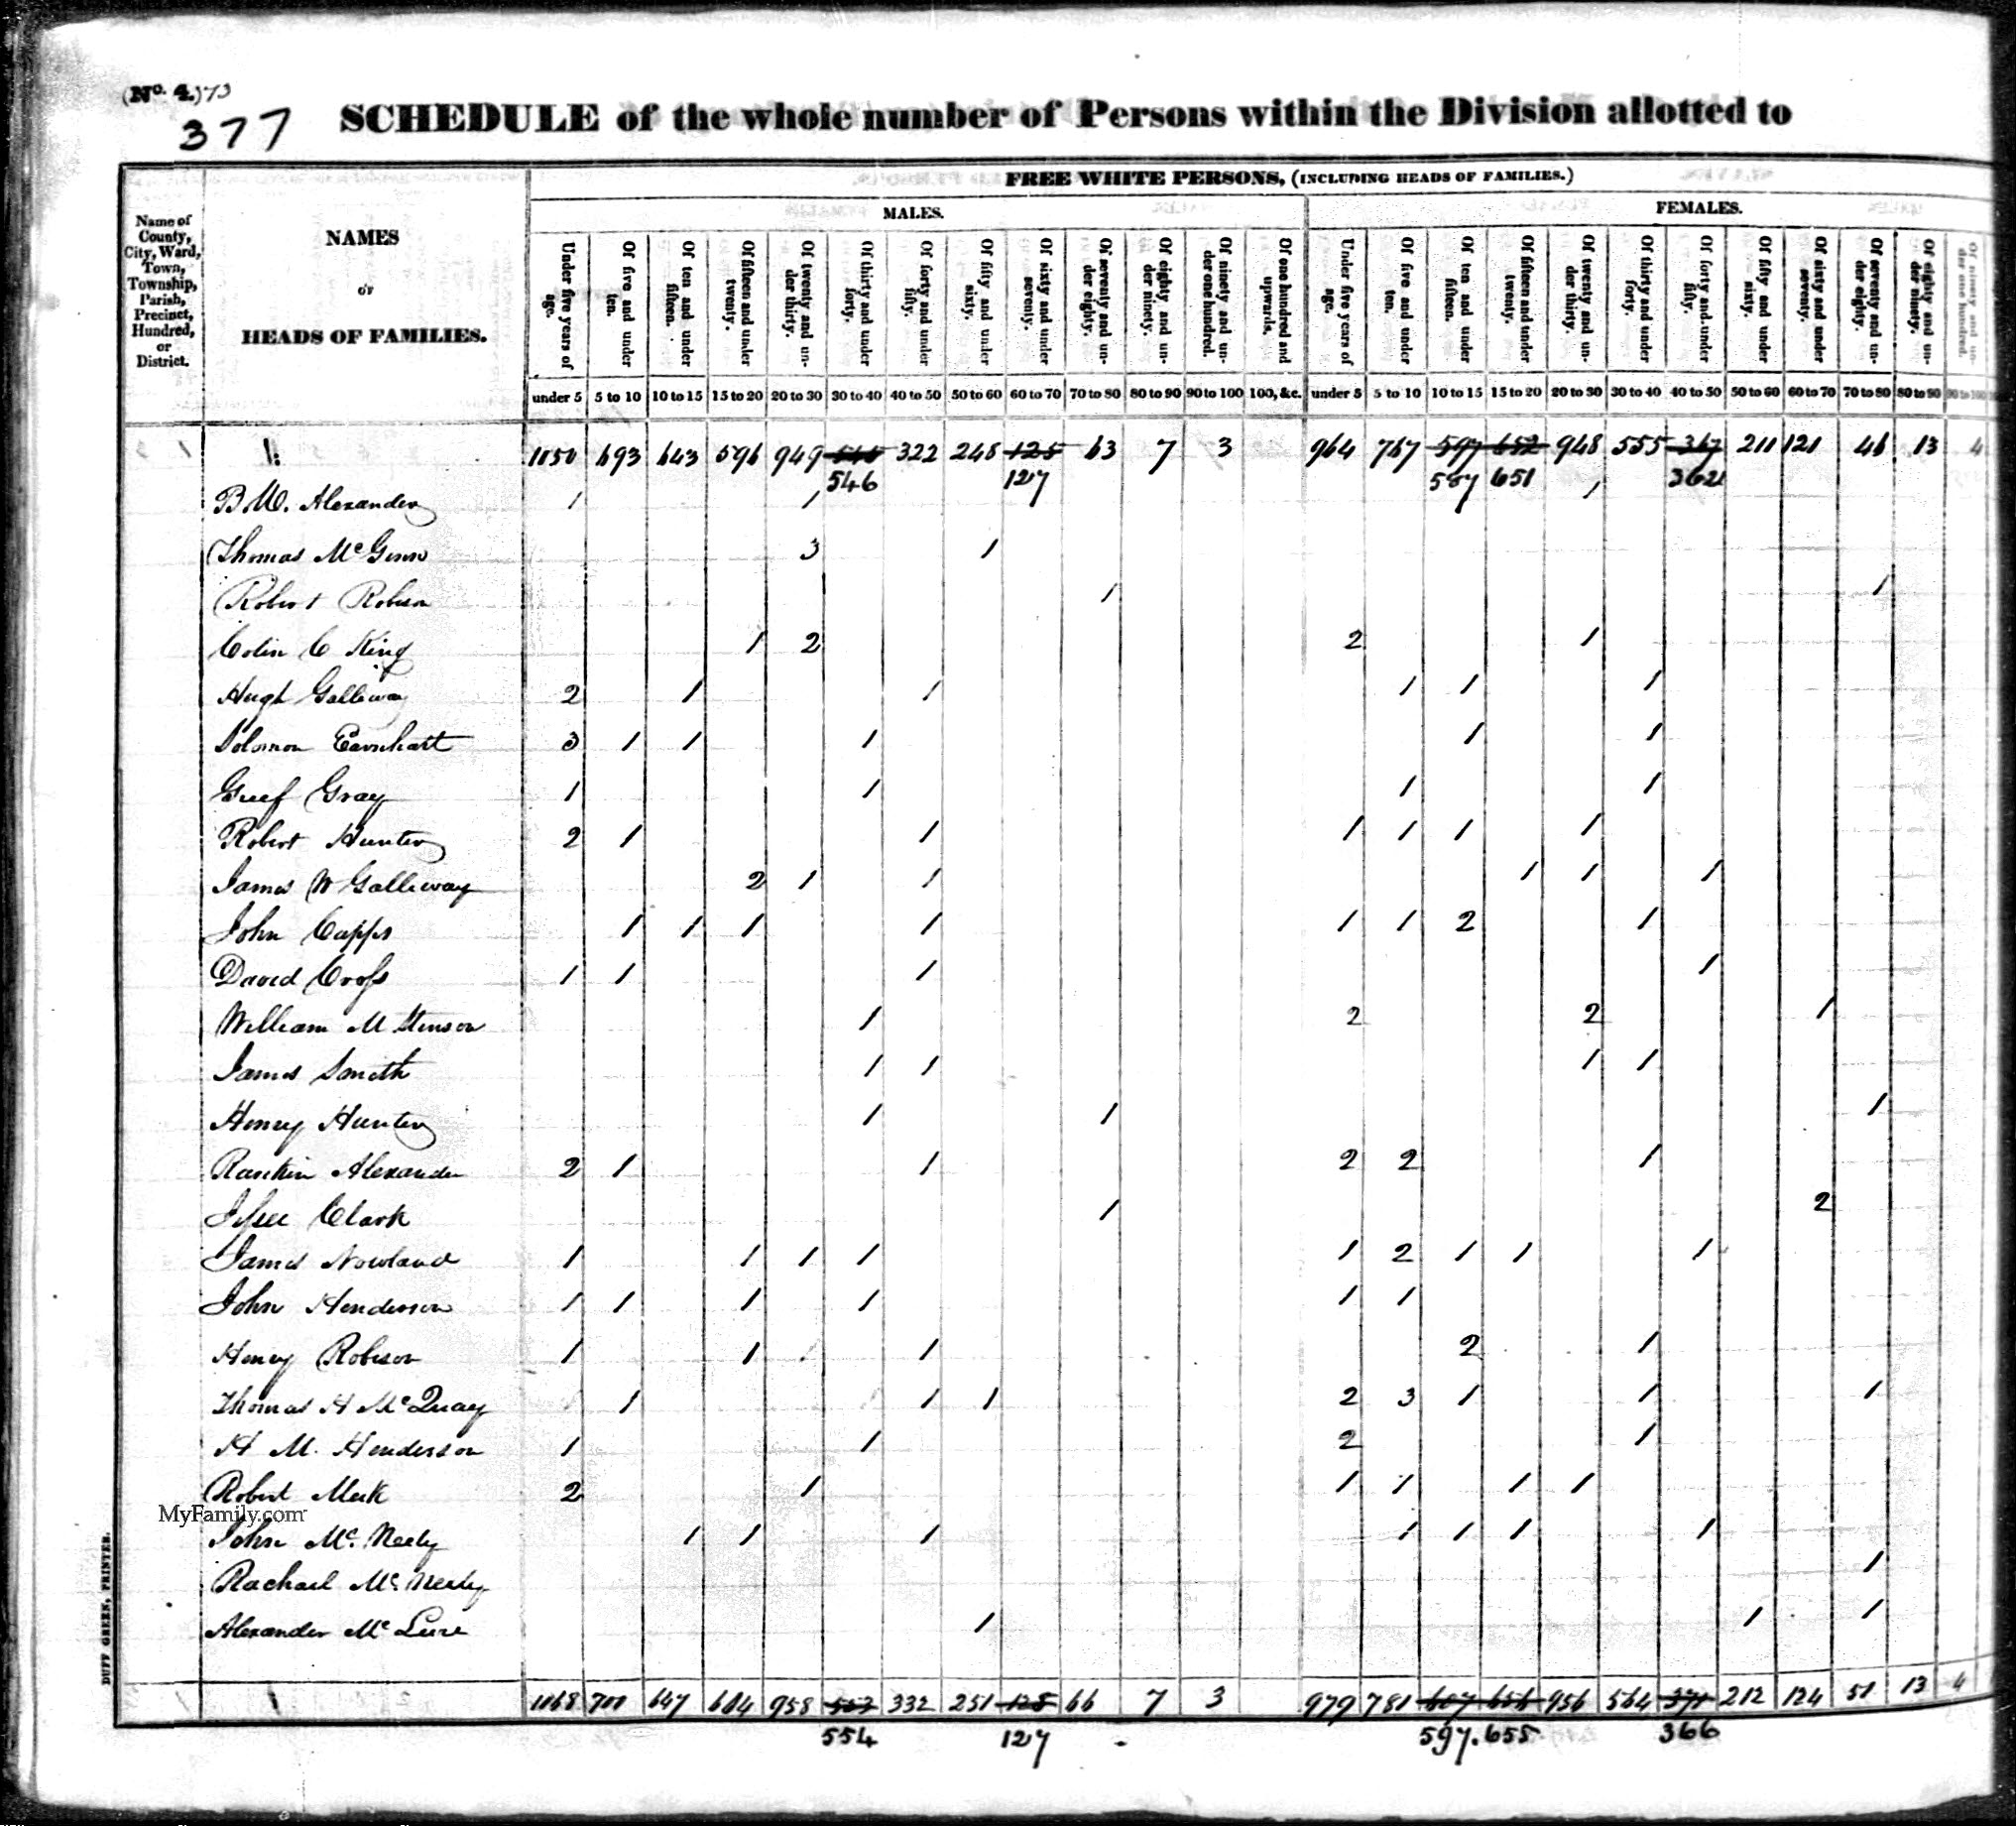 (No. 4.) 173
377 SCHEDULE of the whole number of Persons within the Division allotted to
FREE WHITE PERSONS, (INCLUDING HEADS OF FAMILIES.)
MALES. FEMALES.
Name of County, City, Ward, Town, Township, Parish, Precinct, Hundred, or District.
NAMES
OF
HEADS OF FAMILIES.
Under five years of age.
Of five and under ten.
Of ten and under fifteen.
Of fifteen and under twenty.
Of twenty and under thirty.
Of thirty and under forty.
Of forty and under fifty.
Of fifty and under sixty.
Of sixty and under seventy.
Of seventy and under eighty.
Of eighty and under ninety.
Of ninety and under one hundred.
Of one hundred and upwards.
Under five years of age.
Of five and under ten.
Of ten and under fifteen.
Of fifteen and under twenty.
Of twenty and under thirty.
Of thirty and under forty.
Of forty and under fifty.
Of fifty and under sixty.
Of sixty and under seventy.
Of seventy and under eighty.
Of eighty and under ninety.
Of ninety and under one hundred.
under 5 5 to 10 10 to 15 15 to 20 20 to 30 30 to 40 40 to 50 50 to 60 60 to 70 70 to 80 80 to 90 90 to 100 100, &c. under 5 5 to 10 10 to 15 15 to 20 20 to 30 30 to 40 40 to 50 50 to 60 60 to 70 70 to 80 80 to 90 90 to 100
1050 693 643 596 949 322 248 125 63 7 3 964 767 597 652 948 555 367 211 121 46 13 4
546 127 587 651 362
B. W. Alexander 1 1 1
Thomas McGinn 3 1
Robert Robison 1 1
Colin C King 1 2 2 1
Hugh Galliway 2 1 1 1 1 1
Solomon Earnhart 3 1 1 1 1 1
Greef Gray 1 1 1 1
Robert Hunter 2 1 1 1 1 1 1
James W Galliway 2 1 1 1 1 1
John Capps 1 1 1 1 1 1 2 1
David Cross 1 1 1 1
William M Stinson 1 2 2 1
James Smith 1 1 1 1
Henry Hunter 1 1 1
Rankin Alexander 2 1 1 2 2 1
Jesse Clark 1 2
James Nowland 1 1 1 1 1 2 1 1 1
John Henderson 1 1 1 1 1 1
Henry Robison 1 1 1 2 1
Thomas H McQuay 1 1 1 2 3 1 1 1
H M. Henderson 1 1 2 1
Robert Meek 2 1 1 1 1 1
MyFamily.com
John Mc. Neely 1 1 1 1 1 1 1
Rachael Mc Neely 1
Alexander Mc Lure 1 1 1
1068 700 647 604 958 553 332 251 128 66 7 3 979 781 607 656 956 564 371 212 124 51 13 4
554 127 597. 655 366
DUFF GREEN, PRINTER.